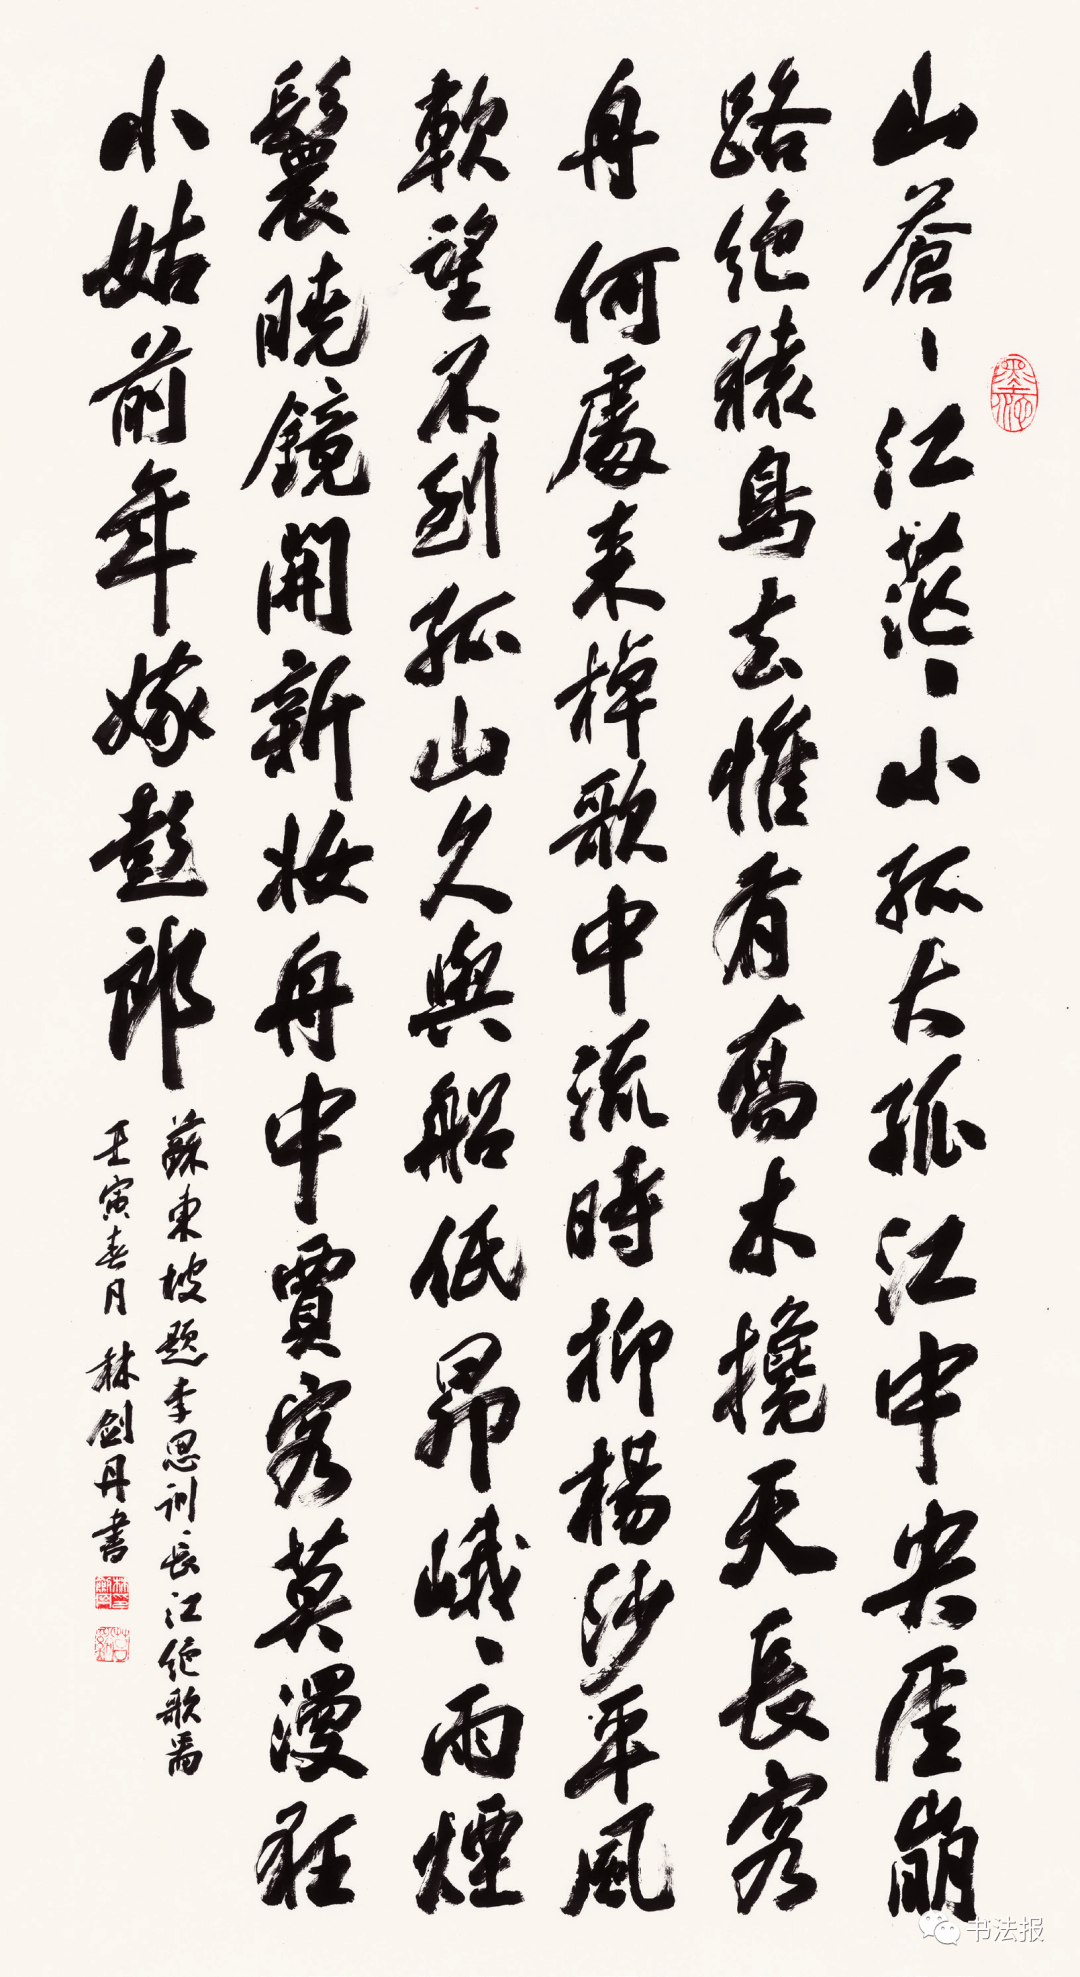 山蒼丶江茫丶小孤大孤江中央崖崩
路絶猿鳥去惟有喬木攙天長客
舟何處来棹歌中流時抑揚沙平風
軟望不到孤山久與船低昂峨丶雨煙
鬟曉鏡開新妝舟中賈客莫漫狂
小姑前年嫁彭郎
蘇東坡題李思训長江絶歌焉
壬寅春月林剑丹書
书法报